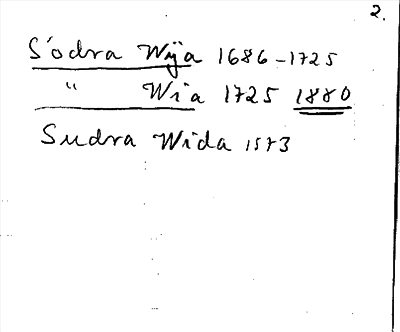 2.
Södra Wija 1686-1725
" Wia 1725 1880
Sudra Wida 1573